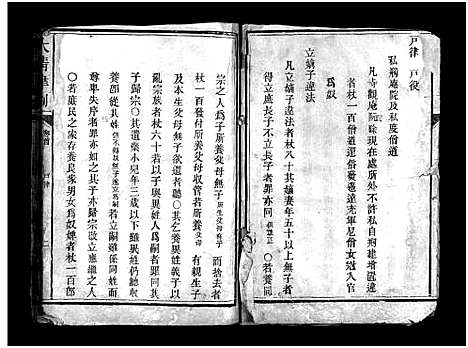 戶律 戶役
私剏庵院及私度僧道
凡寺觀庵院除現在處所外不許私自剏建增置違
者杖一百僧道還俗發邊遠充軍尼僧女冠入官
為奴
立嫡子違法
凡立嫡子違法者杖八十其嫡妻年五十以上無子者
得立庶長子不立長子者罪亦同 〇若養同
宗之人爲子所養父母無子而捨去者
杖一百發付所養父母收管若所養父母有親生子
及本生父母無子欲還者聽〇其乞養異姓義子以
亂宗族者杖六十若以子與異姓人爲嗣者罪同其
子歸宗〇其遺棄小兒年三歲以下雖異姓仍聽收
養即從其姓 〇若立嗣雖係同宗而
尊卑失序者罪亦如之其子亦歸宗改立應繼之人
〇若庶民之家存養良家男女爲奴婢者杖一百即
大清律例
卷首 戶律